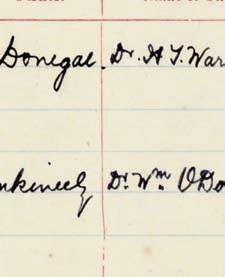 Donegal. Dr. H T. War
nkineely Dr. Wm. O'Do